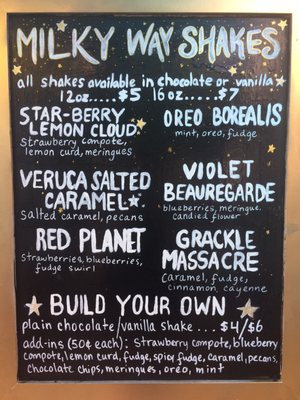 MILKY WAY SHAKES
all shakes available in chocolate or vanilla
12oz.....$5 16oz.....$7
STAR-BERRY
LEMON CLOUD
Strawberry compote,
lemon curd, meringues
OREO BOREALIS
mint, oreo, fudge
VERUCA SALTED
CARAMEL
Salted caramel, pecans
VIOLET
BEAUREGARDE
blueberries, meringue,
candied flower
RED PLANET
Strawberries, blueberries,
fudge swirl
GRACKLE
MASSACRE
Caramel, fudge,
cinnamon, cayenne
BUILD YOUR OWN
plain chocolate/vanilla shake...$4/$6
add-ins (50¢ each): Strawberry compote, blueberry
compote, lemon curd, fudge, spicy fudge, caramel, pecans,
chocolate chips, meringues, oreo, mint